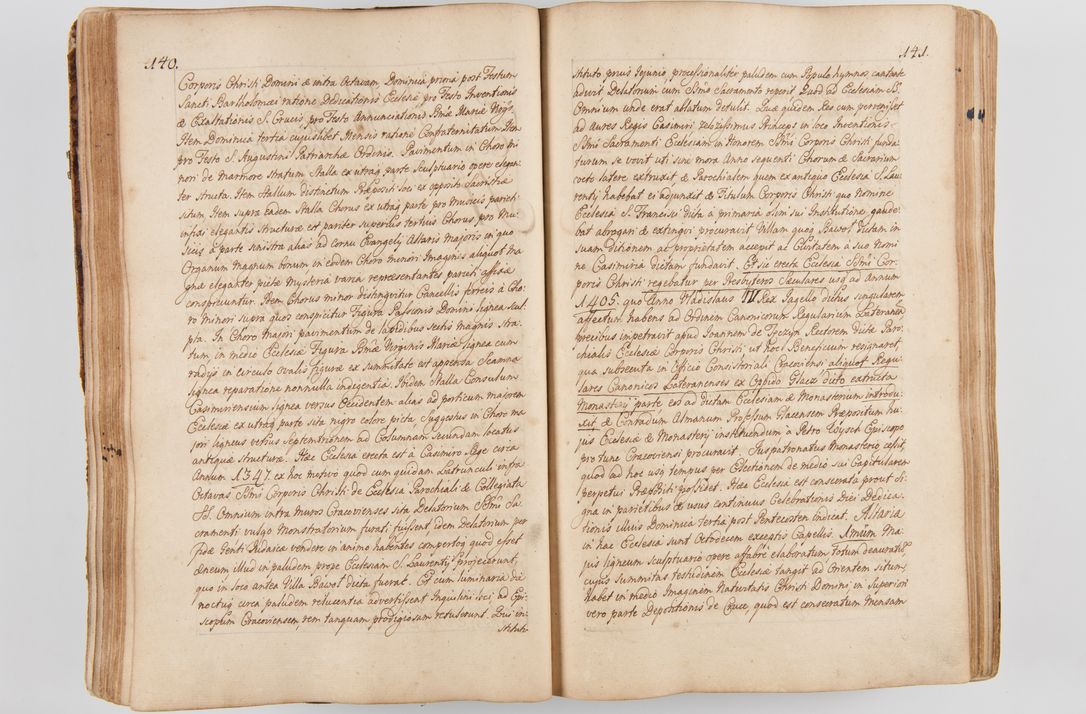 140.
Corporis Christi Domini & intra Octavam, Dominica prima post Festum
Sancti Bartholomæi ratione Dedicationis Ecclesiæ pro Festo Inventionis
& Exaltationis S. Crucis, pro Festo Annunciationis Bmæ Mariæ Virgs.
Item Dominica tertia cujuslibet Mensis ratione Confraternitatum Item
pro Festo S. Augustini Patriarchæ Ordinis. Pavimentum in Choro mi
nori de marmore stratum Stalla ex utraq parte Sculptuario opere elegan
ter structa. Item Stallum distinctum Præpositi loci ex opposito Sacristiæ
situm, Item supra eadem Stalla Chorus ex utraq parte pro musicis pariet
infixi elegantis Structuræ est pariter superius tertius Chorus, pro Mu
sicis à parte sinistra alias ad cornu Evangely Altaris Majoris in quo
Organum magnum bonum in eodem Choro minori Imagines aliquot ma
gnæ eleganter pictæ Mysteria varia repræsentantes parieti affixæ
conspiciuntur. Item Chorus minor distinguitur Cancellis ferreis à Cho
ro minori supra quos conspicitur Figura Passionis Domini lignea scul
pta. In Choro majori pavimentum de lapidibus sectis magnis stra
tum in medio Ecclesiæ Figura Bmæ Virginis Mariæ lignea cum
radijs in circulo ovalis figuræ ex summitate est appensa Scamna
lignea reparatione nonnulla indigentia. Ibidem Stalla Consulum
Casimiriensium lignea versus Occidentem alias ad porticum majorem
Ecclesiæ ex utraq parte sita nigro colore picta, Suggestus in Choro ma
jori ligneus versus Septemtrionem ad Columnam secundam locatus
antiquæ structuræ. Hæc Ecclesia erecta est à Casimiro Rege circa
Annum 1347. ex hoc motivo quod cum quidam Latrunculi infra
Octavas Ssmi Corporis Christi de Ecclesia Parochiali & Collegiata
SS. Omnium intra muros Cracovienses sita Delatorium Ssmi Sa
cramenti vulgo Monstratorium furati fuissent idem Delatorium per
fidæ Genti Judaicæ vendere in animo habentes comperto quod esset
æneum illud in paludem prope Ecclesiam S. Laurenty projecerunt,
quo in loco antea Villa Bawoł dicta fuerat. Et cum luminaria die
noctuq circa paludem relucentia advertissent Inquilini loci ad Epi
scopum Cracoviensem, rem tanquam prodigiosam retulerunt. Qui in
stituto
141.
stituto prius Jejunio, processionaliter paludem cum Populo hymnos cantante
adivit Delatorium cum Ssmo Sacramento reperit Quod ad Ecclesiam SS.
Omnium unde erat ablatum detulit. Quæ quidem Res cum pervenisset
ad aures Regis Casimiri zelozissimus Princeps in loco Inventionis
Ssmi Sacramenti Ecclesiam in Honorem Ssmi Corporis Christi funda
turum se vovit uti sine mora Anno sequenti Chorum & Sacrarium
cocto latere extruxit & Parochialem quem ex antiquo Ecclesia S. Lau
renty habebat ei adjunxit & Titulum Corporis Christi quo nomine
Ecclesia S. Francisci dicta à primaria olim sui Institutione gaude
bat abrogari & extingvi procuravit Villam quoq Bawoł dictam in
suam Ditionem ac proprietatem accepit ac Civitatem à suo Nomi
ne Casimiria dictam fundavit. Et sic erecta Ecclesia Ssmi Cor
poris Christi regebatur per Presbyteros Sæculares usq ad Annum
1405. quo Anno Vladislaus IV Rex Jagello dictus singularem
affectum habens ad Ordinem Canonicorum Regularium Lateranen
precibus impetravit apud Joannem de Tęczyn Rectorem dictæ Paro
chialis Ecclesiæ Corporis Christi ut hoc Beneficium resignaret
qua subsecuta in Officio Consistoriali Cracoviensi aliquot Regu
lares Canonicos Lateranenses ex Oppido Glacz dicto extructa
Monastery parte eos ad dictam Ecclesiam & Monasterium introdu
xit, & Conradum Almanum Professum Glacensem Præpositum hu
jus Ecclesiæ & Monastery instituendum à Petro Wysch Episcopo
pro tunc Cracoviensi procuravit. Juspatronatus Monasterio cessit,
quod ad hoc usq tempus per Electionem de medio sui Capitularem
perpetui Præpositi possidet. Hæc Ecclesia est consecrata prout si
gna in parietibus & usus continuus Celebrationis Diei Dedica
tionis illius Dominica tertia post Pentecosten indicat. Altaria
in hac Ecclesia sunt Octodecem exceptis Capellis. Ma
jus ligneum Sculptuario opere affabre elaboratum totum deauratum
cujus Summitas testudinem Ecclesiæ tangit ad Orientem situm,
Habet in medio Imaginem Nativitatis Christi Domini in Superiori
vero parte Depositionis de Cruce, quod est consecratum Mensam